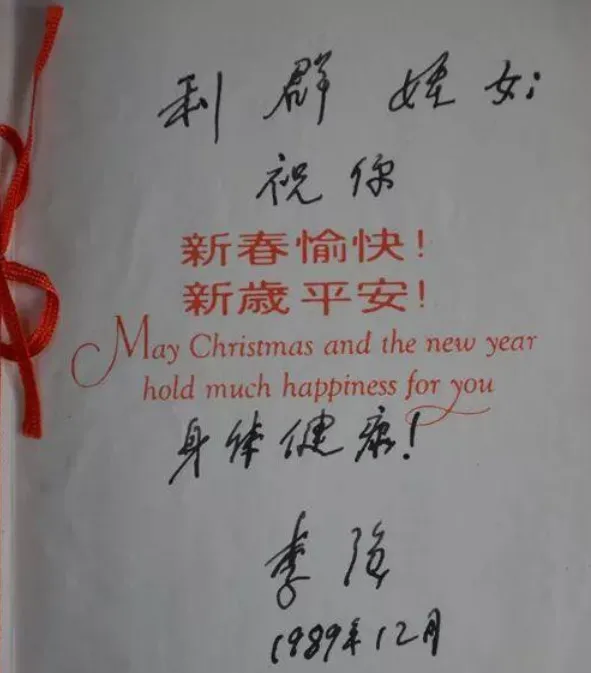 利群侄女:
祝你
新春愉快!
新歲平安!
May Christmas and the new year
hold much happiness for you
身体健康!
李
1989年12月